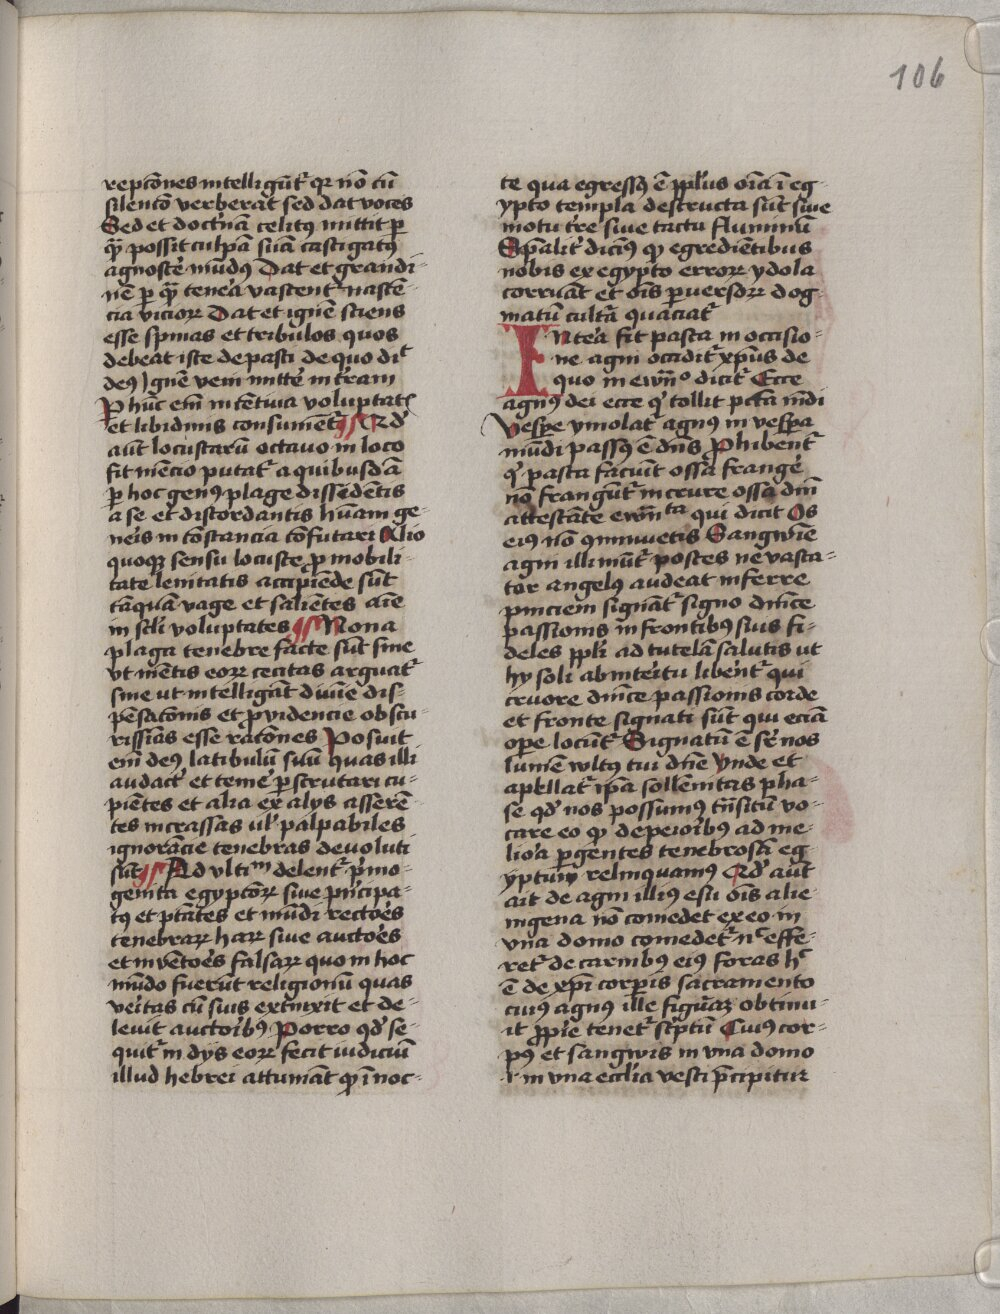 106
repcōnes intelligūt᷑ qꝛ nō cū
silencō verberāt sed dat voces
Sed et doctͥnam celitꝰ mittit ꝑ
qͣ possit culpā suā castigatꝰ
agnosce᷑ mūdꝰ Dat et grandi-
nē ꝑ qͣ tene᷑a vastent᷑ nascē-
cia vicioꝝ Dat et ignē sciens
esse spinas et tribulos quos
debeat iste depasci de quo dīt
deꝰ Ignē veni mitte᷑ in t᷑ram
ꝑ hūc em̄ incētiua voluptat᷑
et libidinis consument᷑ Qd᷑
aūt locustarū octauo in loco
fit mēcio putat᷑ a quibusdā
ꝑ hoc genꝰ plage dissēdētis
a se et discordantis hūam ge-
neris incōstancia cōfutari Alio
quoqꝫ sensu locuste ꝓ mobili-
tate leuitatis accipiēde sūt
tāquā vage et saliētes aīe
in sc̄li voluptates Nona
plaga tenebre facte sūt siue
vt mētis eoꝝ cecitas arguat᷑
siue ut intelligāt diuīe dis-
pēsacōnis et ꝓvidencie obscu-
rissīas esse racōnes Posuit
em̄ deꝰ latibulū suū quas illi
audact᷑ et teme᷑ ꝑscrutari cu-
piētes et alia ex alijs asserē-
tes in crassas ul᷑ palpabiles
ignorācie tenebras deuoluti
sūt Ad vltīᵐ delent᷑ pͥmo-
genita egyptioꝝ siue pͥncipa-
tꝰ et ptātes et mūdi recto᷑es
tenebraꝝ haꝝ siue aucto᷑es
et invēto᷑es falsaꝝ quo in hoc
mūdo fuerūt religionū quas
ve᷑itas cū suis extinxit et de-
leuit aucto᷑ibꝰ Porro qd᷑ se-
quit᷑ in dijs eoꝝ fecit iudiciū
illud hebrei attumāt qͩ ī noc-
te qua egressꝰ ē pplus oīa ī eg-
ypto templa destructa sūt siue
motu t᷑re siue tactu fluminū
Spͣalit᷑ dicīꝰ qͩ egrediētibus
nobis ex egypto erroꝝ ydola
corruāt et oīs ꝑuersoꝝ dog-
matū cultͣa quaciat᷑
Inte᷑a fit pasca in occisio-
ne agni occidit᷑ xp̄us de
quo in ewn̄ᵒ dicit᷑ Ecce
agnꝰ dei ecce qͥ tollit pctā mūdi
Vesꝑe ymolat᷑ agnꝰ in vesꝑa
mūdi passꝰ ē dn̄s ꝓhibent᷑
qͥ pasca faciūt ossa frange᷑
nō frangūt᷑ in cruce ossa dn̄i
attestāte ewn̄ᵗᵃ qui dicit Os
eiꝰ nō ꝯminuetis Sangwīe
agni illiniūt᷑ postes ne vasta-
tor angelꝰ audeat inferre
ꝑniciem signāt᷑ signo dnīce
passionis in frontibꝰ suis fi-
deles ppli ad tutelā salutis ut
hy soli ab inte᷑itu libe᷑nt᷑ qui
cruore dnīce passionis corde
et fronte signati sūt qui eciā
oꝑe locūt᷑ Signatū ē sr᷑ nos
lumē wltꝰ tui dn̄e Vnde et
apellat᷑ ip̄a sollēnitas pha-
se qd᷑ nos possumꝰ trīsitū vo-
care eo qͩ de peio᷑ibꝰ ad me-
lio᷑a ꝑgentes tenebrosā eg-
yptum relinquamꝰ Qd᷑ aūt
ait de agni illiꝰ esu oīs alie-
nigena nō comedet ex eo in
vna domo comedet᷑ nᶜ effe-
ret᷑ de carnibꝰ eiꝰ foras hᶜ
ē de xp̄i corꝑis sacramento
cuiꝰ agnꝰ ille figūaꝫ obtinu-
it ꝓpͥe tenet᷑ scͥptū Cuiꝰ cor-
pꝰ et sangwis in vna domo
i in vna ecclia vesci p̄cipitur